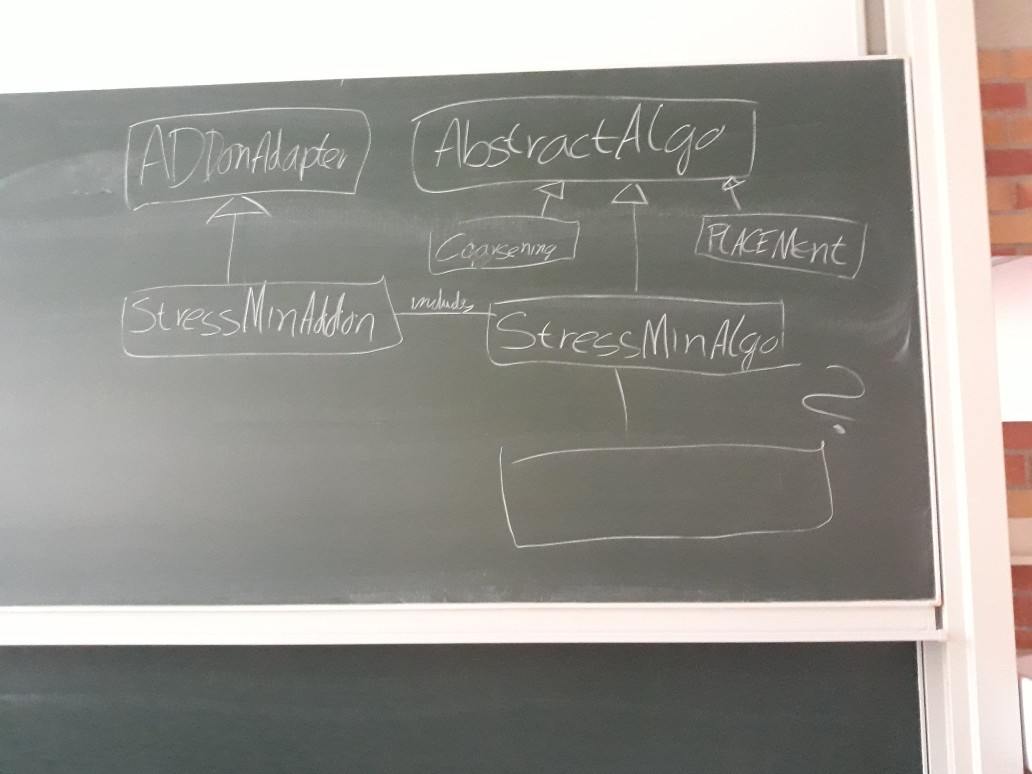 ADDonAdapter
AbstractAlgo
Coarsening
PLACEMent
StressMinAddon
includes
StressMinAlgo
?